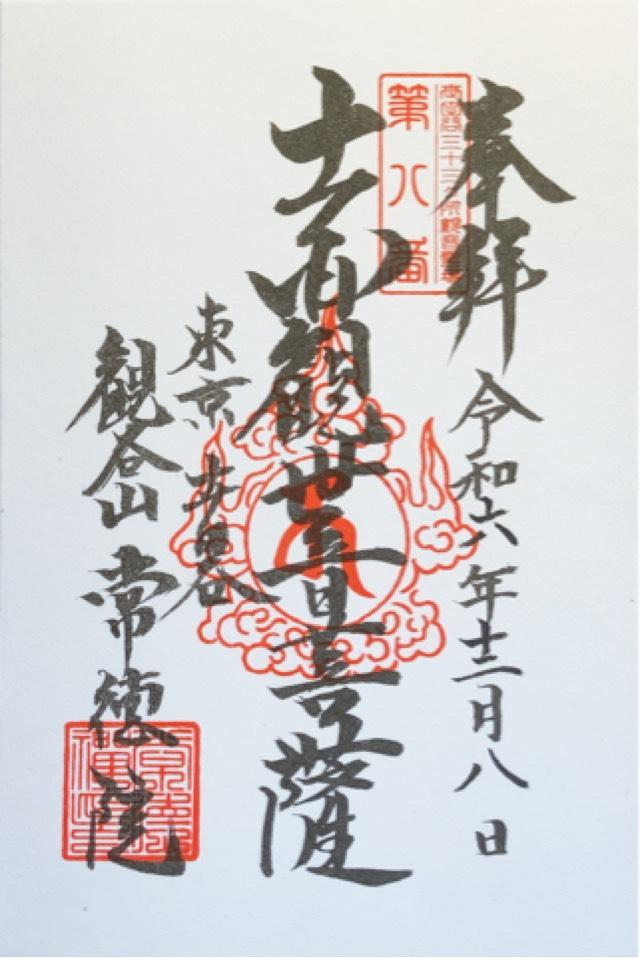 奉拝 令和六年十二月八日
世田谷三十三ヶ所観音霊場
第八番
十一面観世音菩薩
東京 世田谷
観谷山 常徳院